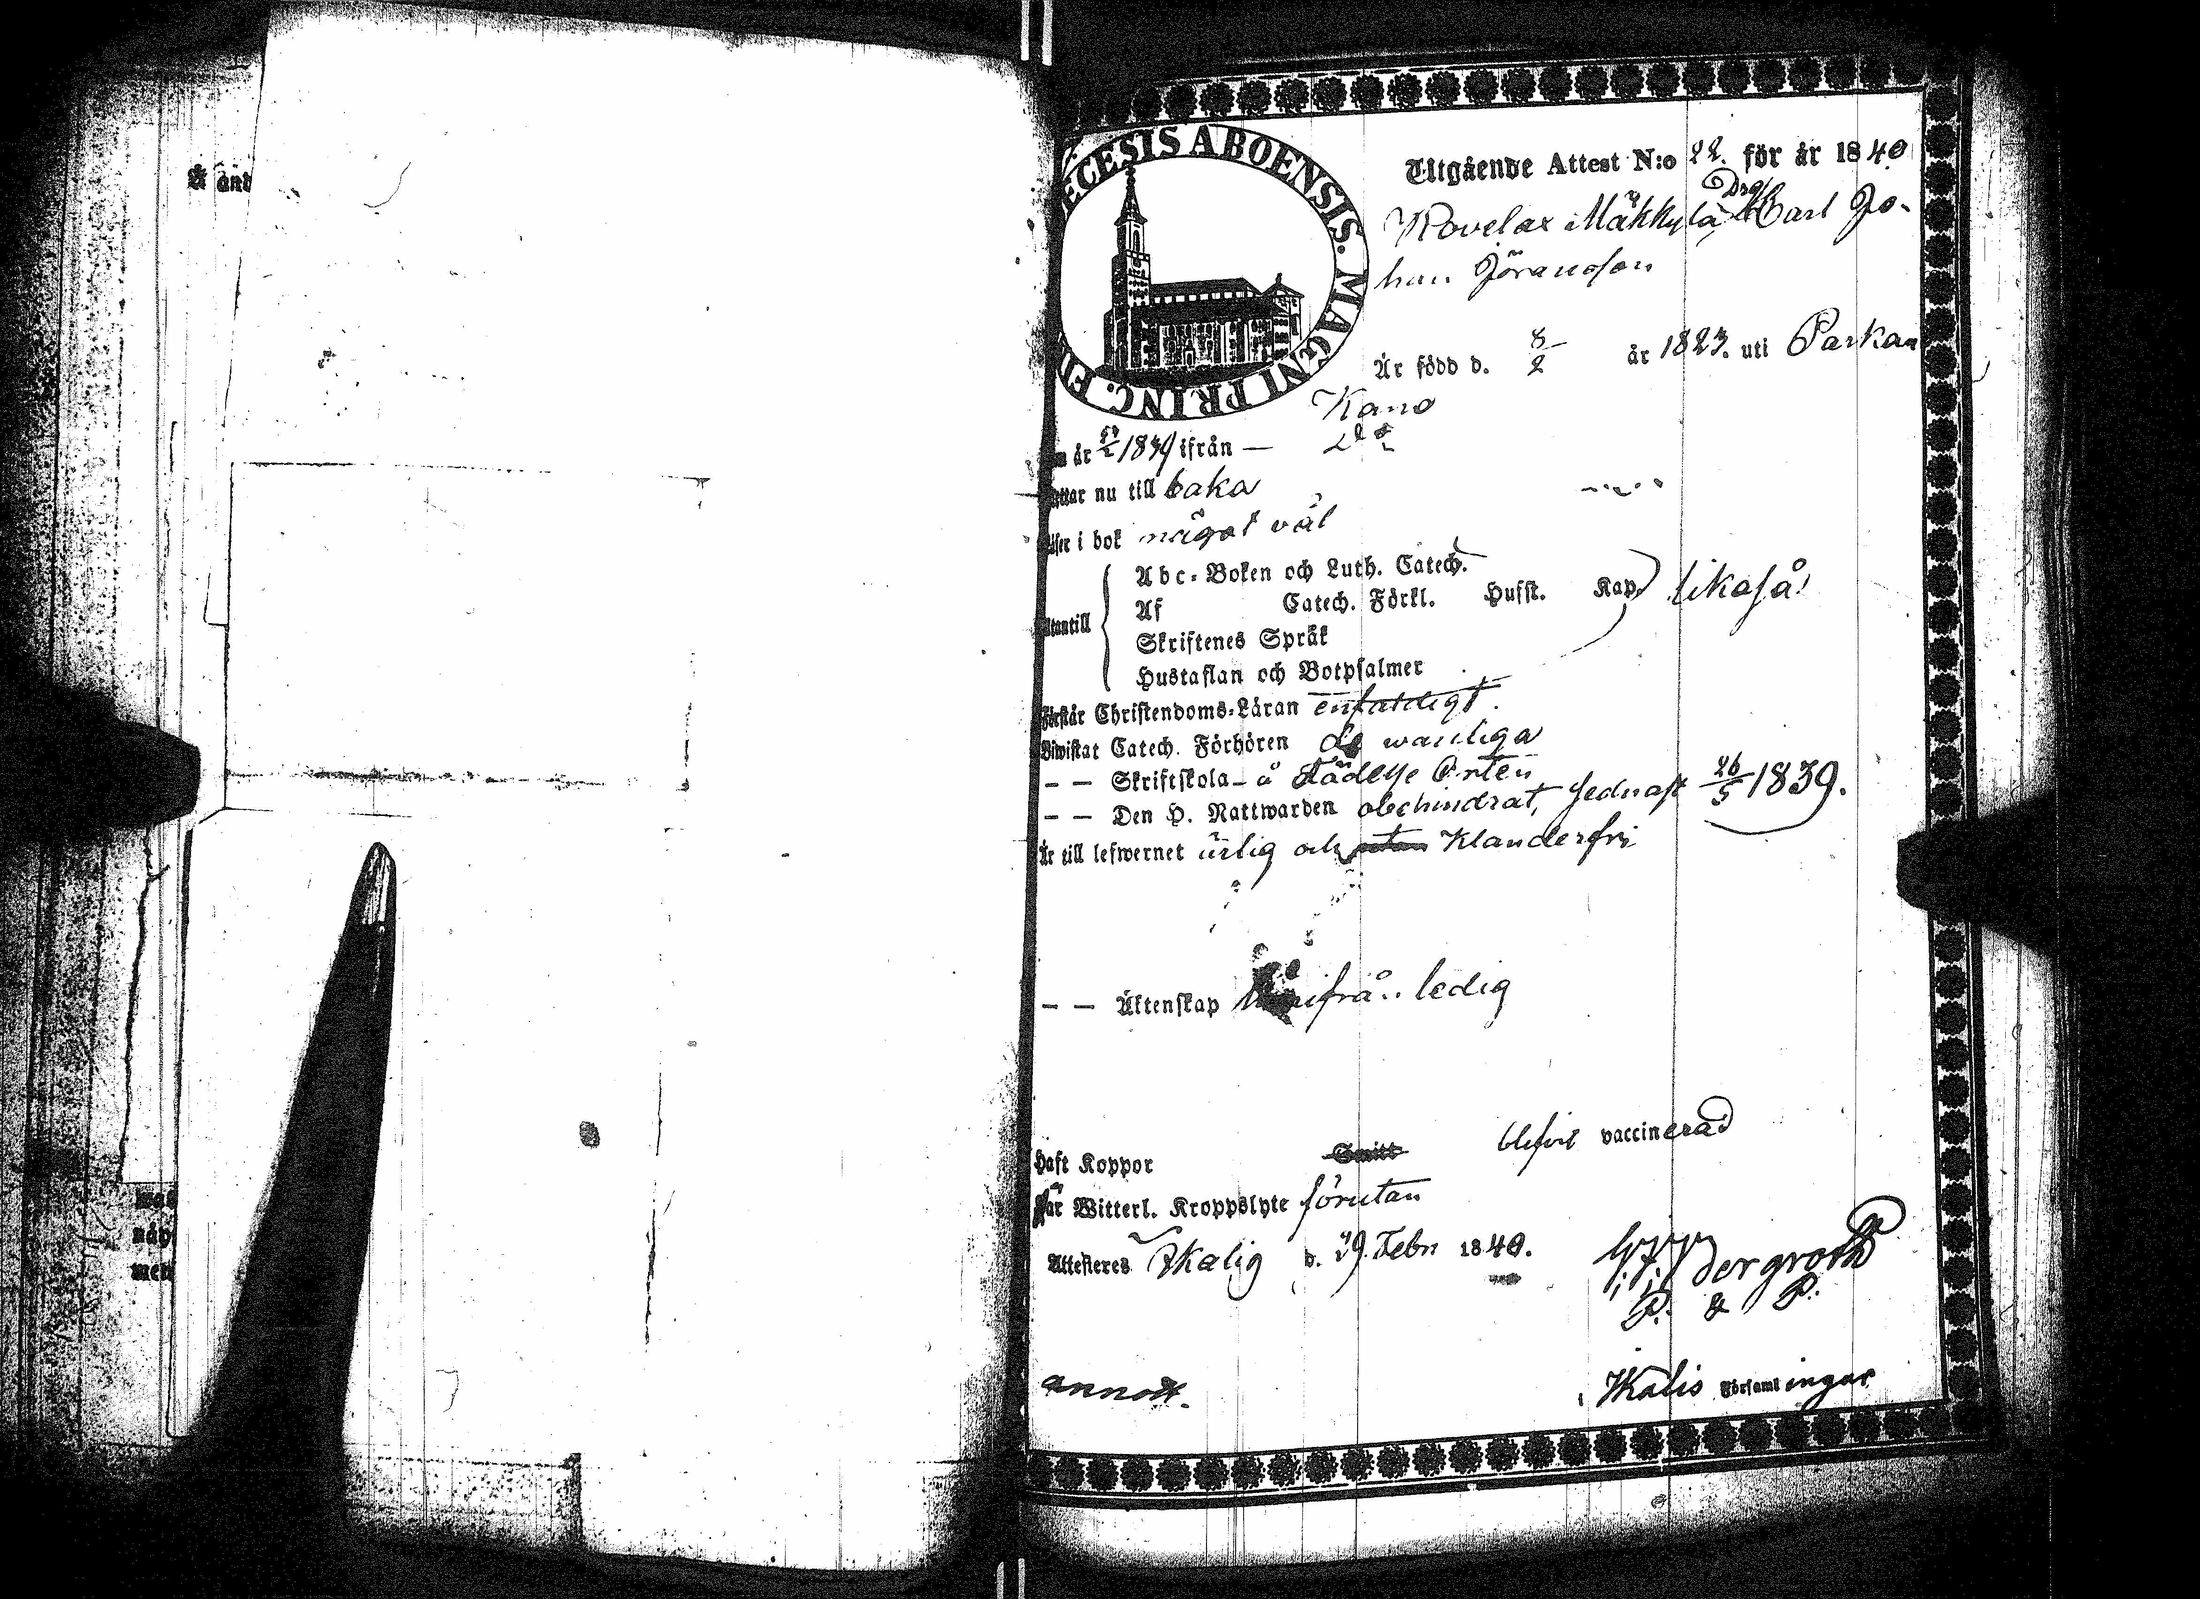 Å änd
DIOECESIS ABOENSIS. MAGNI PRINC. FI
Utgående Attest N:o 22. för år 1840
Drg
Rovelax Mäkkylä Carl Jo-
han Göransson
Är född d. 8/2 år 1823. uti Parkan
Kano
år 1839 ifrån — d:o
nu till baka
i bok något väl
Abc-Boken och Luth. Catech.
Af Catech. Förkl. Husst. Kap. likaså
Utantill
Skriftenes Språk
Hustaflan och Botpsalmer
Förstår Christendoms-Läran enfaldigt.
Biwistat Catech. Förhören de wanliga
— — Skriftskola å städesse Orten
— — Den H. Nattwarden obehindrat, sednast 26/5 1839.
Är till lefwernet ärlig och utan klanderfri
— — Äktenskap härifrån ledig
Haft Koppor Smitt blifvit vaccinerad
Är Witterl. Kroppslyte förutan
Attesteres Ikalis d. 29 Febr 1840.
P. & P.
annott.
Ikalis Församlingar